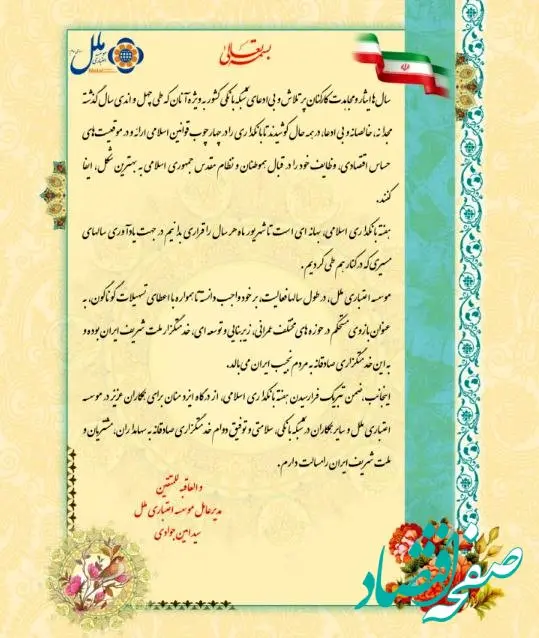 بسمه تعالی
موسسه اعتباری ملل
سال ها ایثار و مجاهدت کارکنان پر تلاش و بی ادعای شبکه بانکی کشور به ویژه آنان که طی چهل و اندی سال گذشته
مجدانه، خالصانه و بی ادعا، در همه حال کوشیدند تا بانکداری را در چهارچوب قوانین اسلامی ارائه و در موقعیت های
حساس اقتصادی، وظایف خود را در قبال هموطنان و نظام مقدس جمهوری اسلامی به بهترین شکل، ایفا
کنند.
هفته بانکداری اسلامی، بهانه ای است تا شهریور ماه هر سال را قراری بدانیم در جهت یادآوری سالهای
مسیری که در کنار هم طی کردیم.
موسسه اعتباری ملل، در طول سالها فعالیت، بر خود واجب دانسته تا همواره با اعطای تسهیلات گوناگون، به
عنوان بازوی مستحکم در حوزه های مختلف عمرانی، زیربنایی و توسعه ای، خدمتگزار ملت شریف ایران بوده و
به این خدمتگزاری صادقانه به مردم نجیب ایران می بالد.
اینجانب، ضمن تبریک فرارسیدن هفته بانکداری اسلامی، از درگاه ایزد منان برای همکاران عزیز در موسسه
اعتباری ملل و سایر همکاران در شبکه بانکی، سلامتی و توفیق دوام خدمتگزاری صادقانه به سهامداران، مشتریان و
ملت شریف ایران را مسالت دارم.
و العاقبه للمتقین
مدیرعامل موسسه اعتباری ملل
سید امین جوادی
صفحه اقتصاد